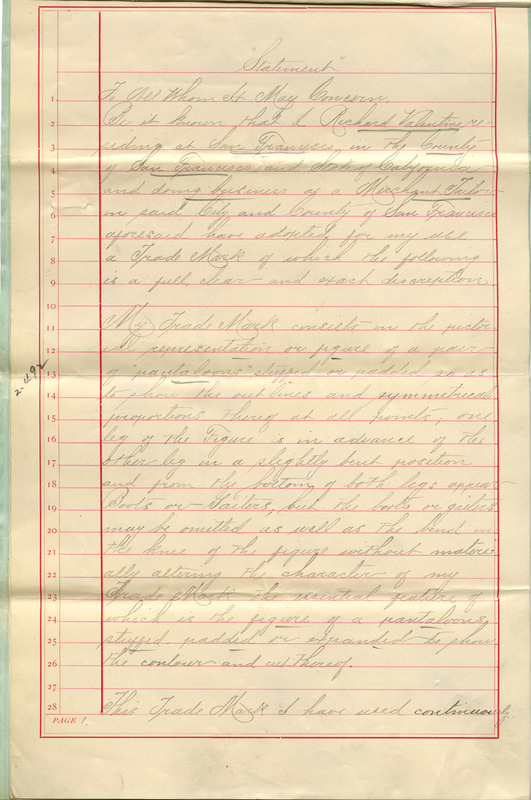 "Statement"
1 To All Whom It May Concern.
2 Be it known that I Richard Valentine re-
3 siding at San Francisco in the County
4 of San Francisco and State of California
5 and doing business as a Merchant Tailor
6 in said City and County of San Francisco
7 aforesaid have adopted for my use
8 a Trade Mark of which the following
9 is a full, clear and exact description.
10
11 My Trade Mark consists in the pictor-
12 ial representation or figure of a pair
13 of "pantaloons" stuffed or padded so as
14 to show the outlines and symmetrical
15 proportions thereof at all points; one
16 leg of the Figure is in advance of the
17 other leg in a slightly bent position
18 and from the bottom of both legs appear
19 Boots or Gaiters, but the boots or gaiters
20 may be omitted as well as the bend in
21 the knee of the figure without materi-
22 ally altering the character of my
23 Trade Mark the essential feature of
24 which is the figure of a pantaloons,
25 stuffed padded or expanded to show
26 the contour and cut thereof.
27
28 This Trade Mark I have used continuously
PAGE 1.
2492